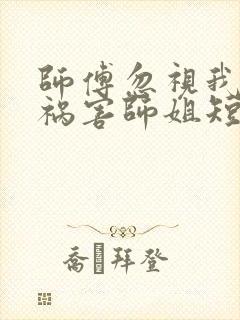 師傅忽視我
祸害師姐短
喬 拜登